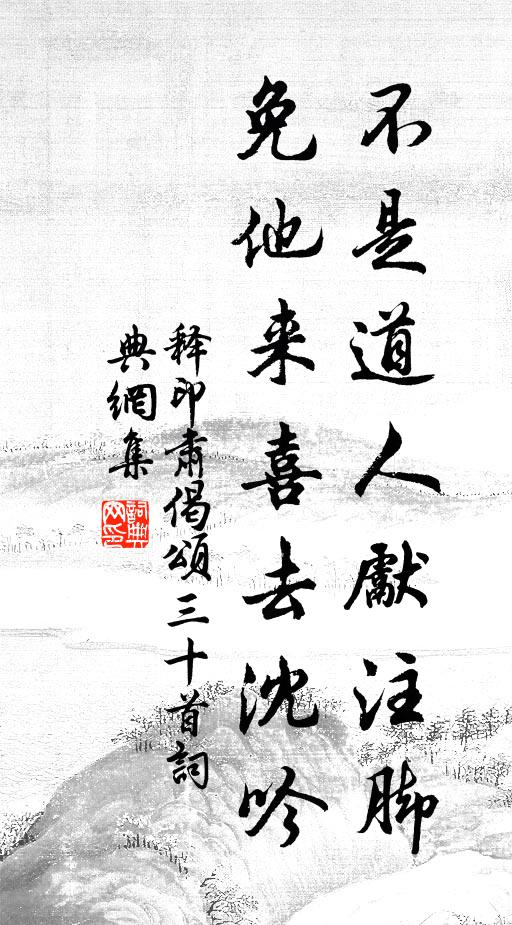 不是道人獻注脚
免他来喜去沈吟
释印肃偈頌三十首詞
典網集
詞典网印